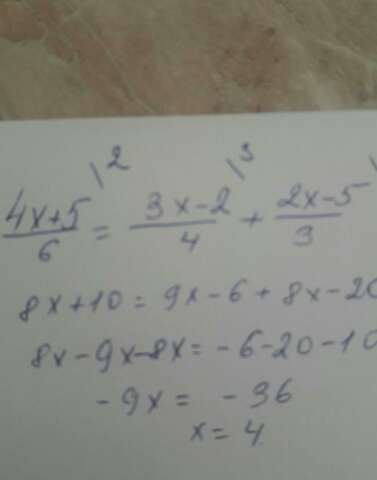 \2 \3 \
4x+5/6 = 3x-2/4 + 2x-5/3
8x+10 = 9x-6+8x-20
8x-9x-8x = -6-20-10
-9x = -36
x=4.